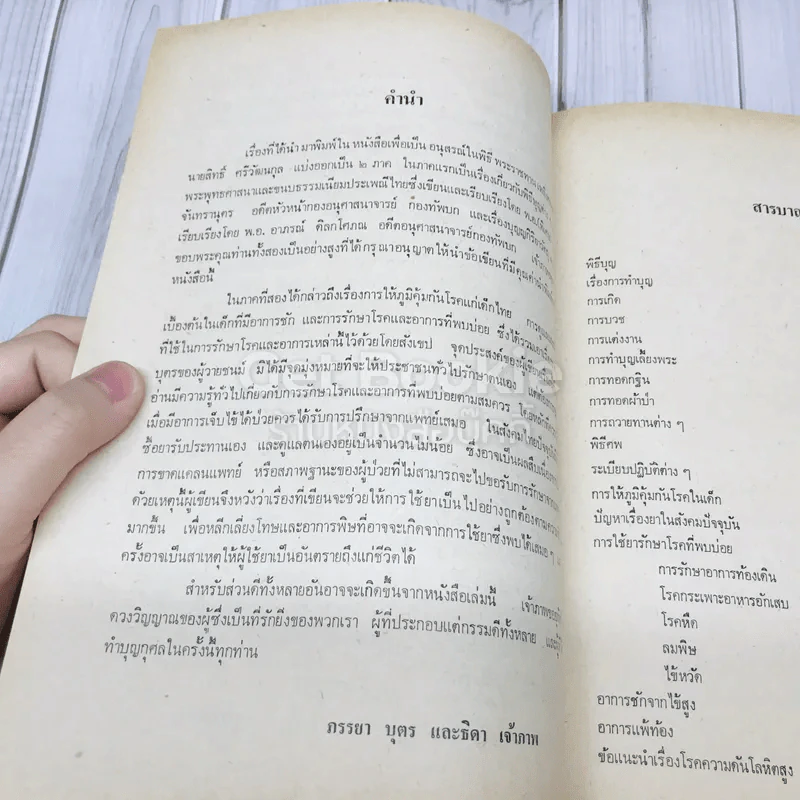 คำนำ
เรื่องที่ได้นำ มาพิมพ์ใน หนังสือเพื่อเป็น อนุสรณ์ในพิธี
นายสิทธิ์ ศรีวัฒนกุล แบ่งออกเป็น ๒ ภาค ในภาคแรกเป็นเรื่องเกี่ยวกับ
พระพุทธศาสนาและขนบธรรมเนียมประเพณีไทยซึ่งเขียนและเรียบเรียงโดย
จันทรานุตร อดีตหัวหน้ากองอนุศาสนาจารย์ ก็องทัพบก และเรื่องบุญญกิริยา
เรียบเรียงโดย พ.อ. อาภรณ์ ติลกโศภณ อดีตอนุศาสนาจารย์กองทัพบก
ขอบพระคุณท่านทั้งสองเป็นอย่างสูงที่ได้กรุณาอนุญาตให้นำข้อเขียนที่มีคุณค่า
หนังสือนี้
ในภาคที่สองได้กล่าวถึงเรื่องการให้ภูมิคุ้มกันโรคแก่เด็กไทย
เบื้องต้นในเด็กที่มีอาการชัก และการรักษาโรคและอาการที่พบบ่อย ซึ่งได้รวม
ที่ใช้ในการรักษาโรคและอาการเหล่านี้ไว้ด้วยโดยสังเขป จุดประสงค์ของผู้เขียน
บุตรของผู้วายชนม์ มิได้มีจุดมุ่งหมายที่จะให้ประชาชนทั่วไปรักษาตนเอง
อ่านมีความรู้ทั่วไปเกี่ยวกับการรักษาโรคและอาการที่พบบ่อยตามสมควร
เมื่อมีอาการเจ็บไข้ได้ป่วยควรได้รับการปรึกษาจากแพทย์เสมอ ในสังคมไทย
ซื้อยารับประทานเอง และดูแลตนเองอยู่เป็นจำนวนไม่น้อย ซึ่งอาจเป็นผลสืบเนื่อง
การขาดแคลนแพทย์ หรือสภาพฐานะของผู้ป่วยที่ไม่สามารถจะไปขอรับการรักษา
ด้วยเหตุนี้ผู้เขียนจึงหวังว่าเรื่องที่เขียนจะช่วยให้การ ใช้ยาเป็น ไปอย่างถูกต้องตาม
มากขึ้น เพื่อหลีกเลี่ยงโทษและอาการพิษที่อาจจะเกิดจากการใช้ยาซึ่งพบได้เสมอ ๆ
ครั้งอาจเป็นสาเหตุให้ผู้ใช้ยาเป็นอันตรายถึงแก่ชีวิตได้
สำหรับส่วนดีทั้งหลายอันอาจจะเกิดขึ้นจากหนังสือเล่มนี้
ดวงวิญญาณของผู้ซึ่งเป็นที่รักยิ่งของพวกเรา ผู้ที่ประกอบแต่กรรมดีทั้งหลาย
ทำบุญกุศลในครั้งนี้ทุกท่าน
ภรรยา บุตร และธิดา เจ้าภาพ
สารบาญ
พิธีบุญ
เรื่องการทำบุญ
การเกิด
การบวช
การแต่งงาน
การทำบุญเลี้ยงพระ
การทอดกฐิน
การทอดผ้าป่า
การถวายทานต่าง ๆ
พิธีศพ
ระเบียบปฏิบัติต่าง ๆ
การให้ภูมิคุ้มกันโรคในเด็ก
ปัญหาเรื่องยาในสังคมปัจจุบัน
การใช้ยารักษาโรคที่พบบ่อย
การรักษาอาการท้องเดิน
โรคกระเพาะอาหารอักเสบ
โรคหืด
ลมพิษ
ไข้หวัด
อาการชักจากไข้สูง
อาการแพ้ท้อง
ข้อแนะนำเรื่องโรคความดันโลหิตสูง